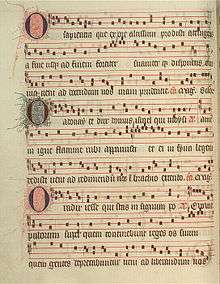 O sapientia que ex ore altissimi prodisti attinges
a fine usq ad finem fortiter suaviter q disponens om
nia veni ad docendum nos viam prudencie
O adonay et dux domus israel qui moysi
in igne flamme rubi apparuisti et ei in syna legem
dedisti veni ad redimendum nos in brachio extento
O radix iesse qui stas in signum po
pulorum super quem continebunt reges os suum
quem gentes deprecabuntur veni ad liberandum nos